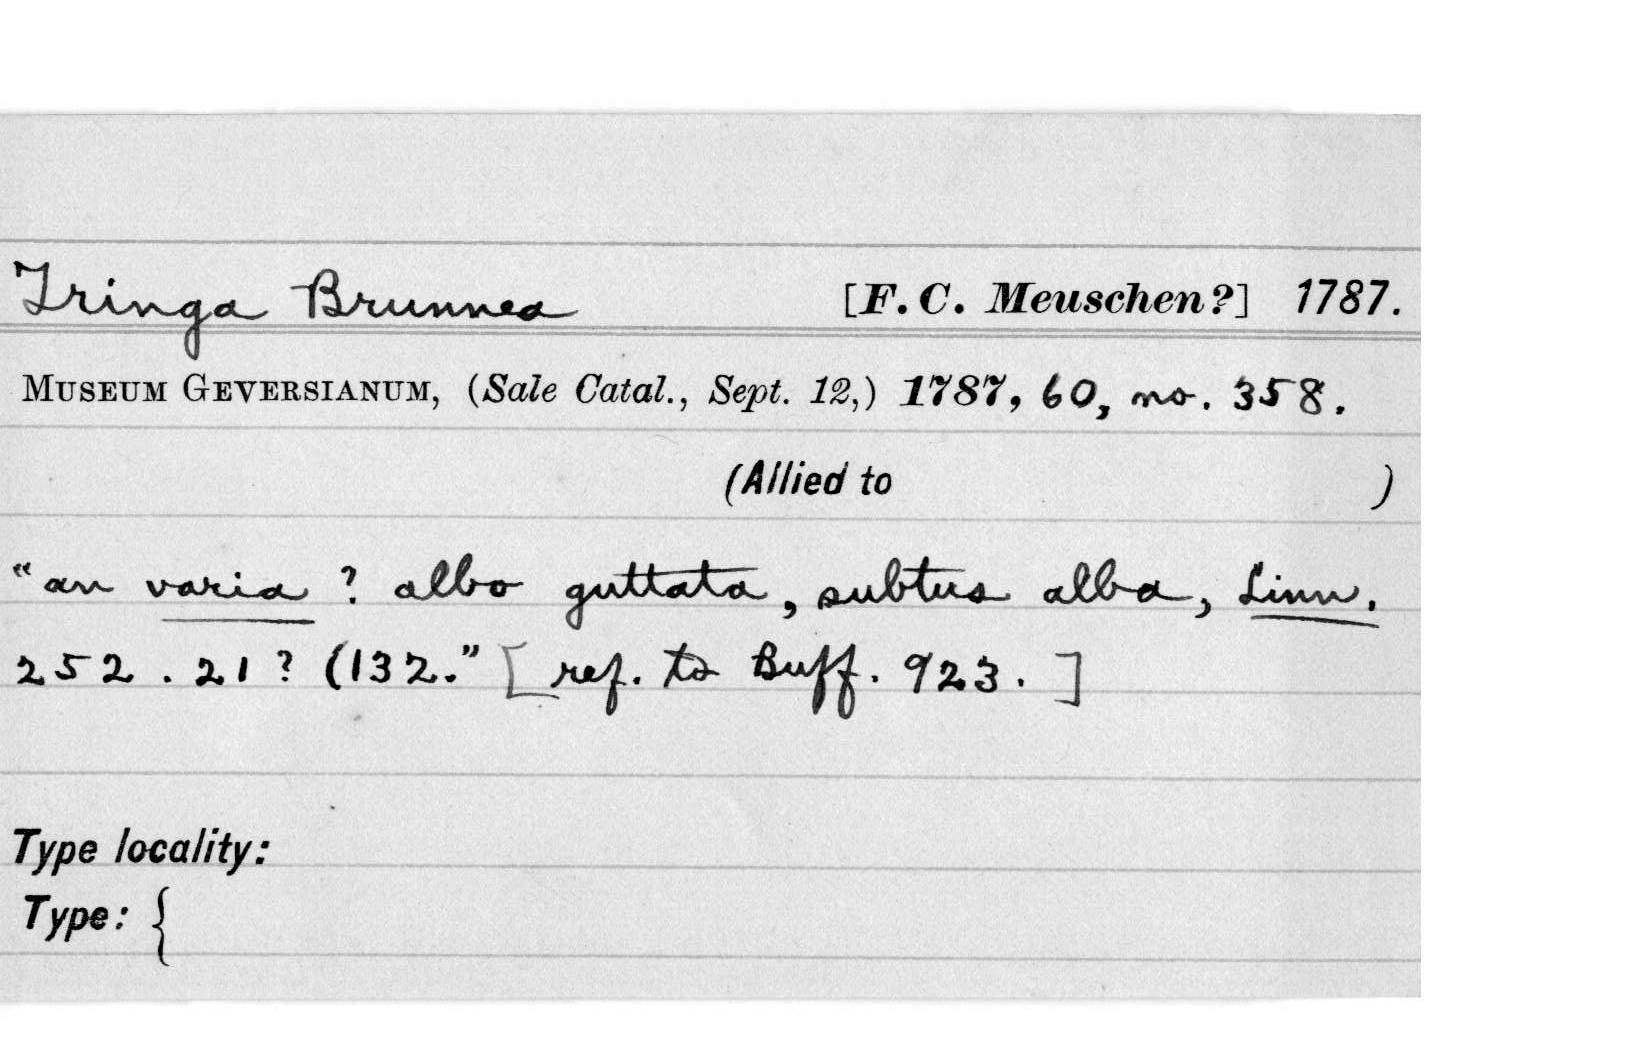 Tringa Brunnea [F. C. Meuschen?] 1787.
Museum Geversianum, (Sale Catal., Sept. 12,) 1787, 60, no. 358.
(Allied to )
"an varia ? albo guttata, subtus alba, Linn.
252 . 21 ? (132." [ref. to Buff. 923.]
Type locality:
Type: {